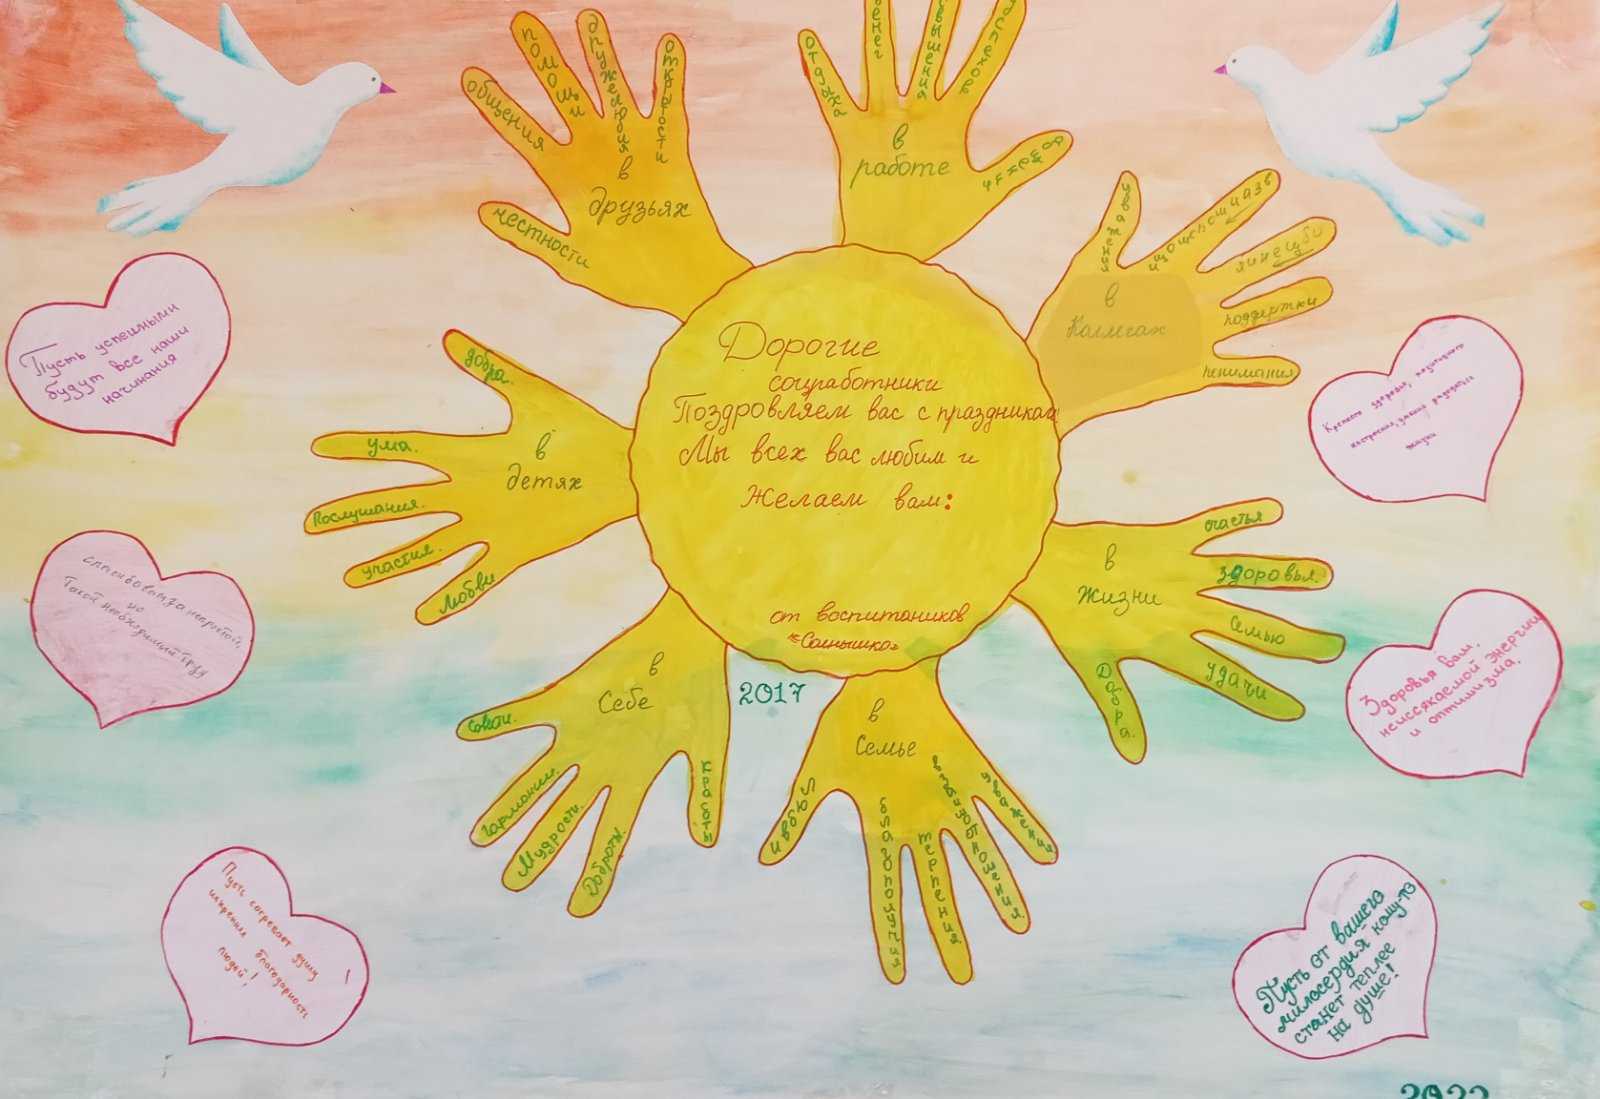 Дорогие
соцработники
Поздровляем вас с праздником
Мы всех вас любим и
Желаем вам:
от воспитаников
"Солнышко"
2017
в
друзьях
честности
общения
помощи
дружелюбия
открытости
в
работе
отдыха
денег
успехов
в
Коллегах
уважения
поддержки
понимания
в
Жизни
счастья
здоровья.
Семью
удачи
Добра.
в
Семье
Любви
благополучия
терпения
взаимоотношения.
уважении
в
Себе
гармонии.
Мудрости.
Доброты.
красоты
в
детях
добра.
ума.
Послушания.
участия.
Любви
Пусть успешными
будут все наши
начинания
спасибо вам за непростой,
но
такой необходимый труд
Пусть согревает душу
искренняя благодарность
людей!
Крепкого здоровья, позитивного
настроения, умения радоваться
жизни
Здоровья вам,
неиссякаемой энергии
и оптимизма.
Пусть от вашего
милосердия кому-то
станет теплее
на душе!
2022